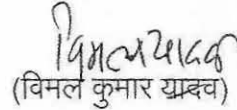 विमल यादव
(विमल कुमार यादव)